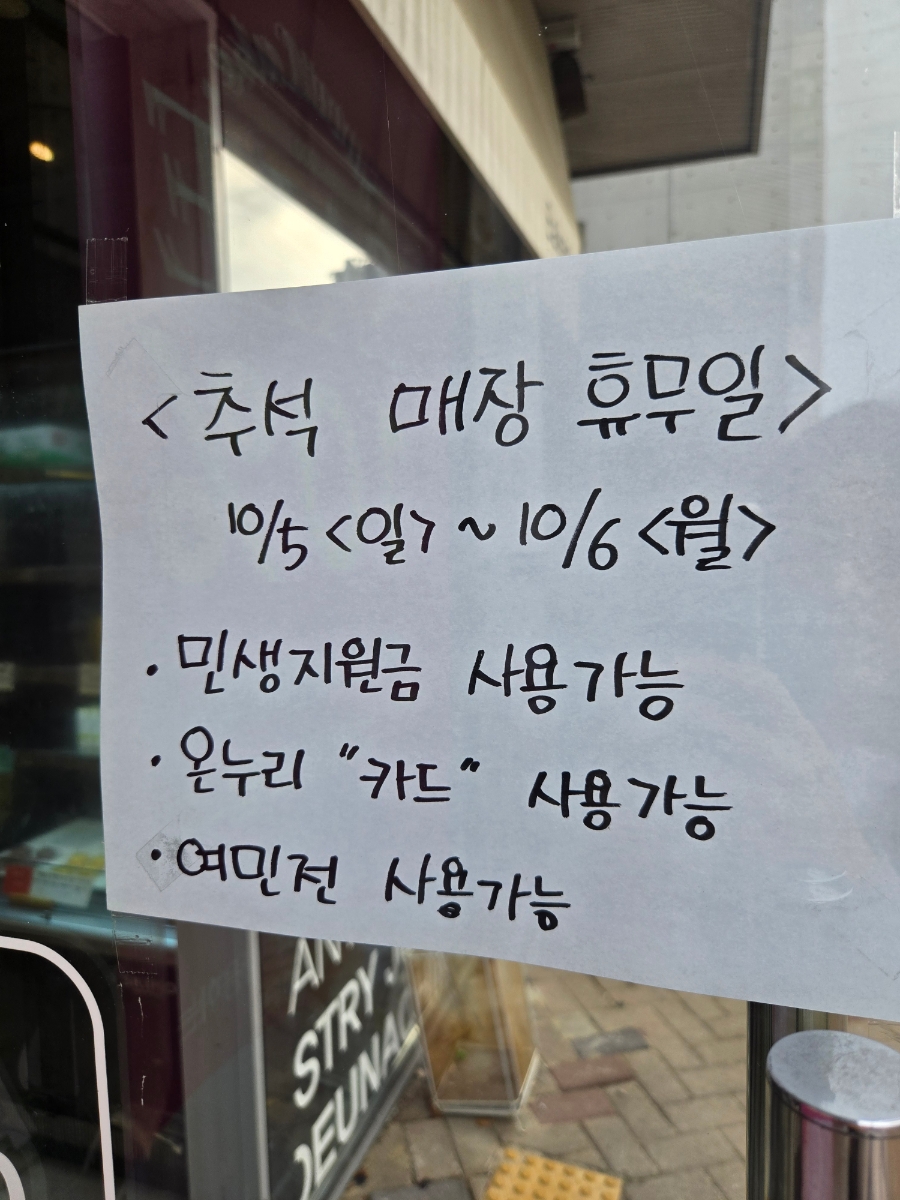 <추석 매장 휴무일>
10/5 <일> ~ 10/6 <월>
· 민생지원금 사용가능
· 온누리 "카드" 사용가능
· 여민전 사용가능
STRY
DEUNAC